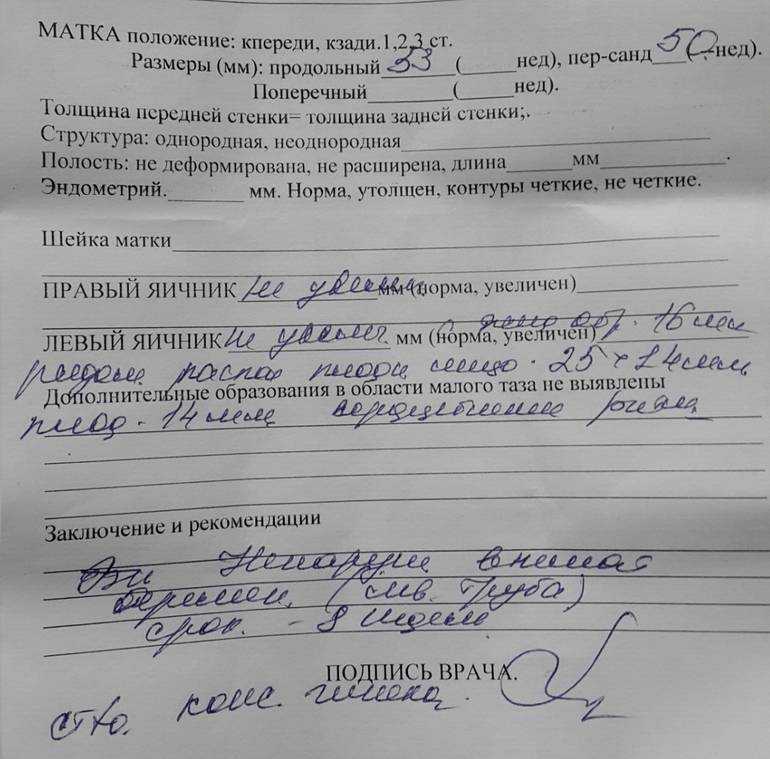 МАТКА положение: кпереди, кзади.1,2,3 ст.
Размеры (мм): продольный 53 (____нед), пер-санд 50 (. -нед).
Поперечный______(____нед).
Толщина передней стенки= толщина задней стенки;.
Структура: однородная, неоднородная
Полость: не деформирована, не расширена, длина______мм ______.
Эндометрий.______ мм. Норма, утолщен, контуры четкие, не четкие.
Шейка матки
ПРАВЫЙ ЯИЧНИК не увелич. мм (норма, увеличен)
ЛЕВЫЙ ЯИЧНИК не увелич. мм (норма, увеличен) обр. 16 мм
рядом распол плодн яйцо. 25 × 24 мм
Дополнительные образования в области малого таза не выявлены
плод - 14 мм
Заключение и рекомендации
внемат
беремен. (лев. труба)
срок - 8 недель
ПОДПИСЬ ВРАЧА.
конс. гинеко